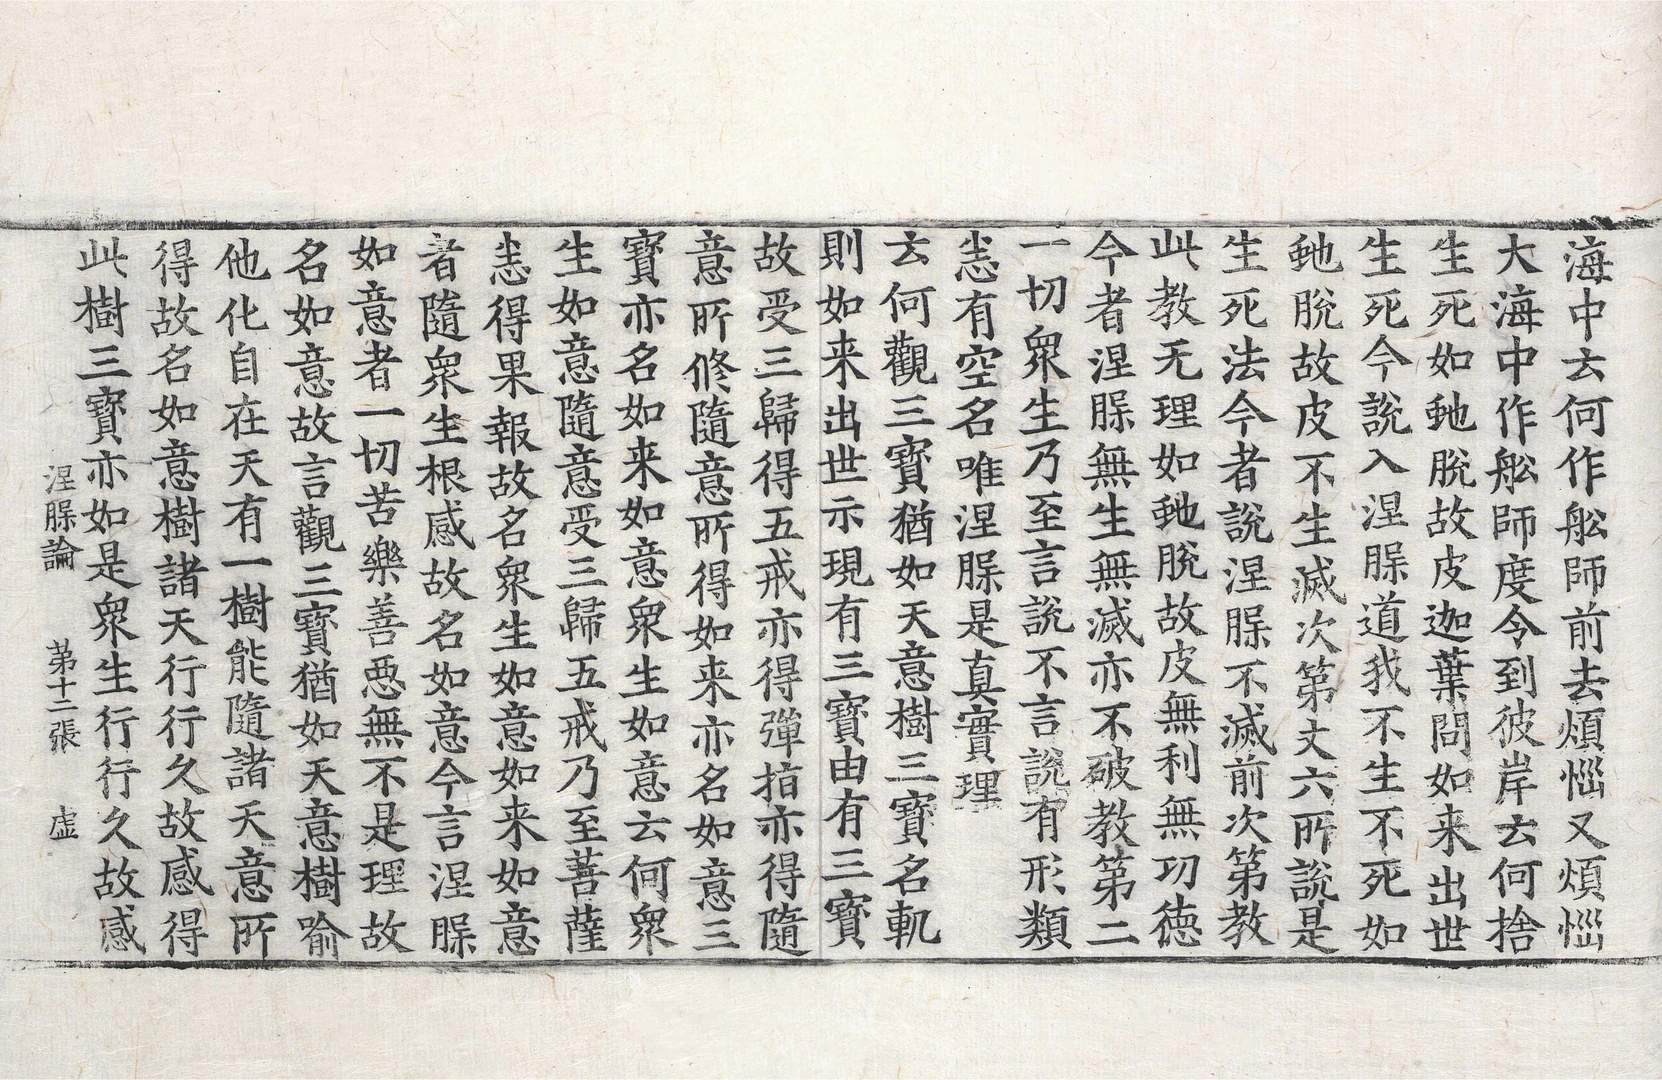 海中云何作舩師前去煩惱又煩惱
大海中作舩師度令到彼岸云何捨
生死如虵脫故皮迦葉問如来出世
生死今說入涅槃道我不生不死如
虵脫故皮不生滅次第丈六所說是
生死法今者說涅槃不滅前次第教
此教无理如虵脫故皮無利無功德
今者涅槃無生無滅亦不破教第二
一切衆生乃至言說不言說有形類
恙有空名唯涅槃是真實理
云何觀三寶猶如天意樹三寶名軌
則如来出世示現有三寶由有三寶
故受三歸得五戒亦得彈指亦得隨
意所修隨意所得如来亦名如意三
寶亦名如来如意衆生如意云何衆
生如意隨意受三歸五戒乃至菩薩
恙得果報故名衆生如意如来如意
者隨衆生根感故名如意今言涅槃
如意者一切苦樂善惡無不是理故
名如意故言觀三寶猶如天意樹喻
他化自在天有一樹能隨諸天意所
得故名如意樹諸天行行久故感得
此樹三寶亦如是衆生行行久故感
涅槃論 第十二張 虛